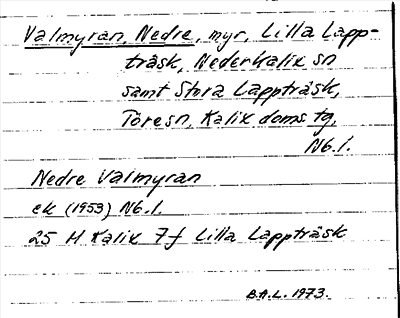 Valmyran, Nedre, myr, Lilla Lapp-
träsk, Nederkalix sn
samt Stora Lappträsk,
Töre sn, Kalix doms tg,
Nb.l.
Nedre Valmyran
ek (1953) Nb.l.
25 M Kalix 7f Lilla Lappträsk
B.A.L. 1973.